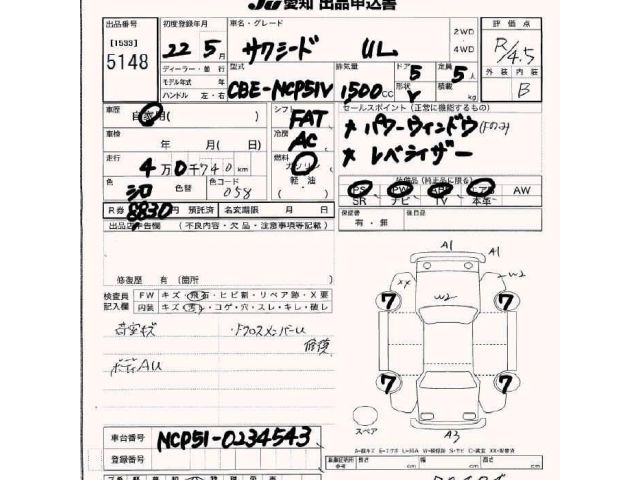 JU 愛知 出品申込書
出品番号 初度登録年月 車名・グレード 評価点
[1533] 5148
22年 5月 サクシード UL 2WD 4WD R/4.5
ディーラー・並行 型式 排気量 ドア 定員 外装 内装
モデル年式 年 CBE-NCP51V 1,500cc 5 5人 B
ハンドル 左・右 形状 V 積載 kg
車歴 自家用( ) シフト FAT セールスポイント(正常に機能するもの)
車検 年 月( 日) 冷房 AC * パワーウィンドウ(Fのみ)
走行 4万0千740km 燃料 ガソリン 軽油・( ) * レベライザー
色 シロ 色替 色コード 058 装備品(純正品に限る)
PS PW ABS エアB AW
SR ナビ TV 本革
R券 8830円 預託済 名変期限 月 日 保証書 有・無 後日品
出品店申告欄 (不良内容・欠品・注意事項等記載)
修復歴 有(箇所
A1 A1
XX W2 W2
7 7
7 7
スペア A3
検査員 記入欄 FW キズ・飛石・ヒビ割・リペア跡・X要
内装 キズ・汚れ・コゲ・穴・スレ・キレ・破レ
荷室キズ ・Fクロスメンバーu 修復
ボディAU
車台番号 NCP51-0234543
登録番号
長さ cm 幅 cm 高さ cm